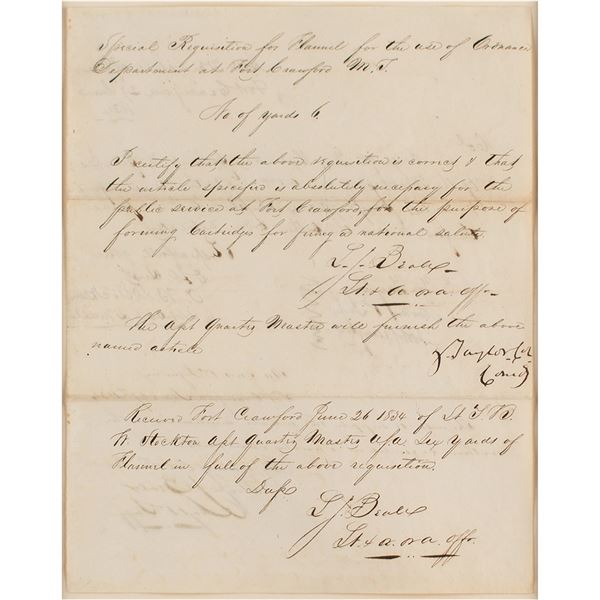 Special Requisition for Flannel for the use of Ordnance
Department at Fort Crawford M.T.
No of yards 6
I certify that the above requisition is correct & that
the article specified is absolutely necessary for the
public service at Fort Crawford, for the purpose of
forming Cartridges for firing a national salute.
L. J. Beale
Lt. & a. ord. offr.
The Asst Quarter Master will furnish the above
named article
Z. Taylor Col
Comdg
Received Fort Crawford June 26 1834 of Lt T. B.
W. Stockton Asst Quarter Master USA Six Yards of
Flannel in full of the above requisition.
Dup.
L. J. Beale
Lt. & a. ord. offr.